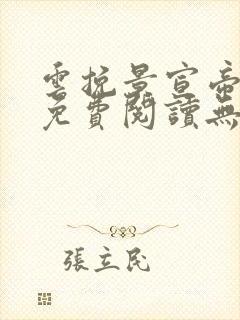 雲挽景宣帝
免費閱讀無
張立民